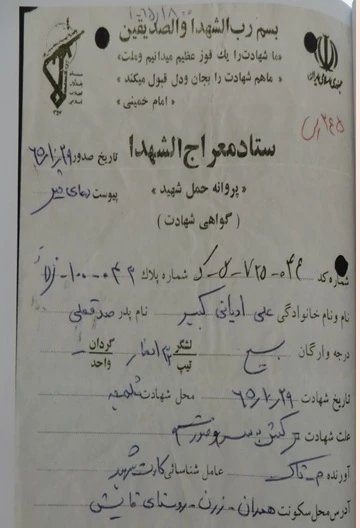 ۱۰۶۵/۱۸۰۰
بسم رب الشهدا والصدیقین
«ما شهادت را یك فوز عظیم میدانیم وملت»
« ماهم شهادت را بجان ودل قبول میکند »
« امام خمینی »
ستاد معراج الشهدا
تاریخ صدور ۶۵/۱۰/۲۹
« پروانه حمل شهید »
پیوست
( گواهی شهادت )
شماره کد شماره پلاك
نام ونام خانوادگی علی ادیانی کبیر نام پدر صدقعلی
درجه وارگان بسیج لشگر تیپ ۳۲ انصار گردان واحد
تاریخ شهادت ۶۵/۱۰/۲۹ محل شهادت شلمچه
علت شهادت ترکش به سر و صورت
آورنده عامل شناسائی کارت شهید
آدرس محل سکونت همدان - رزن - روستای